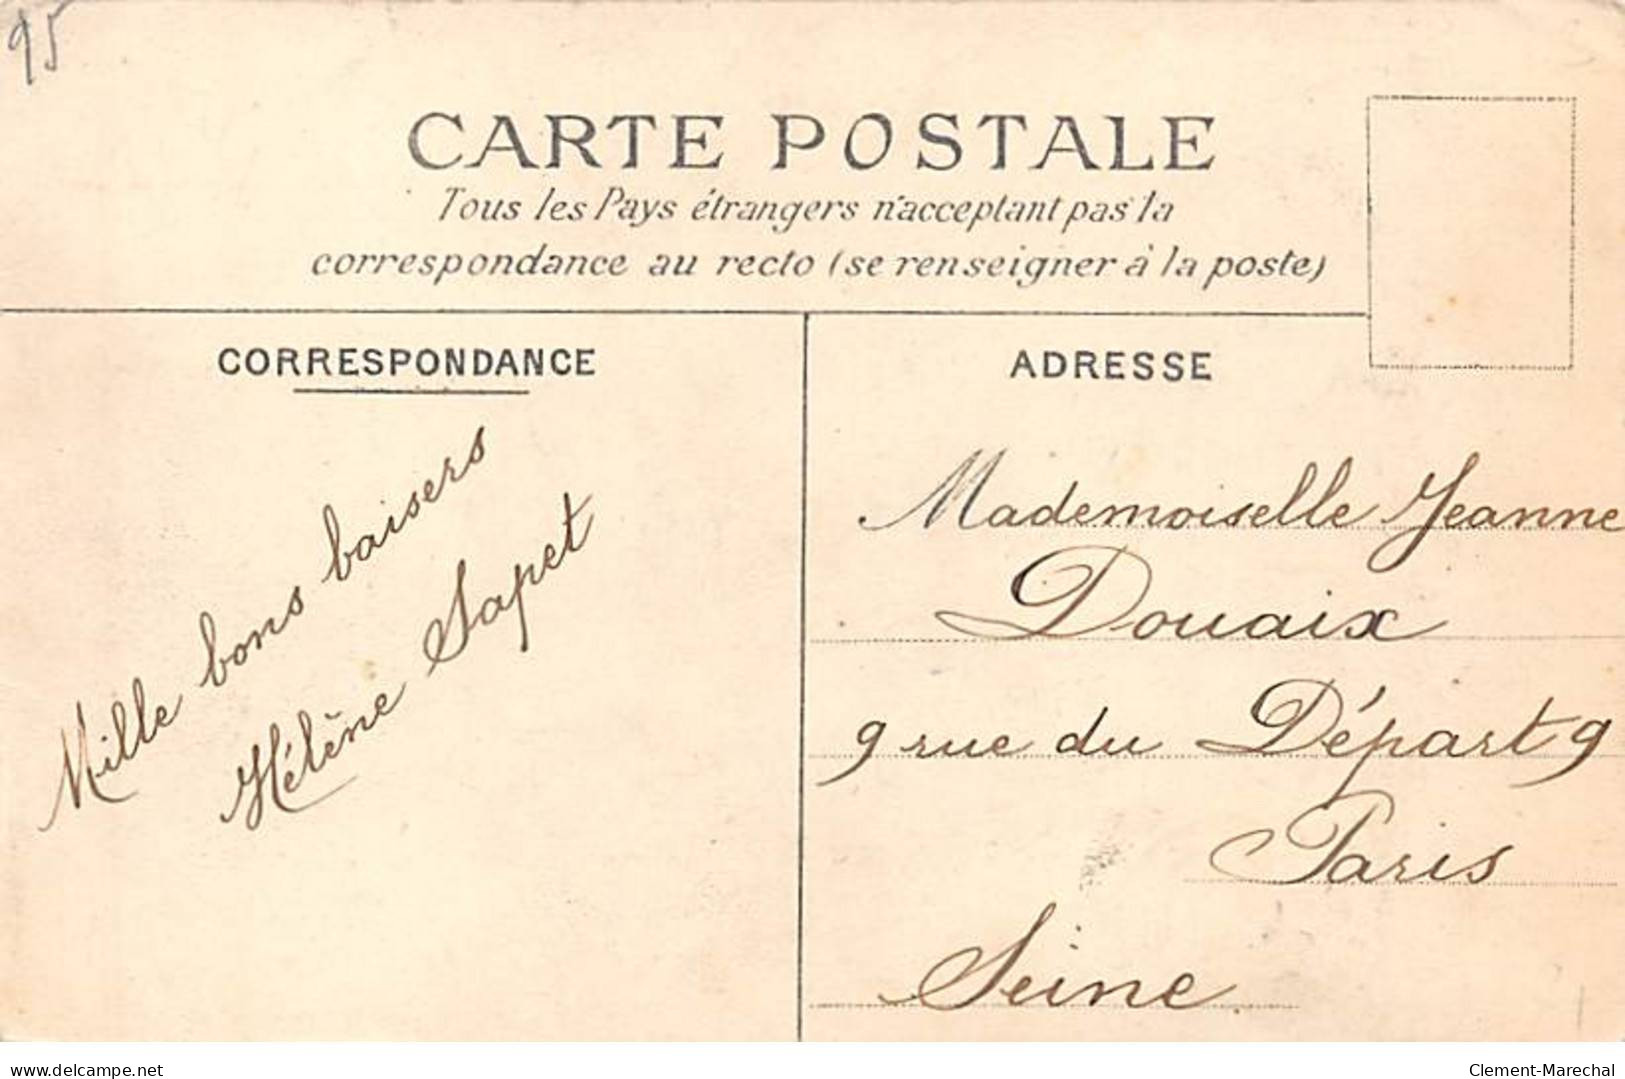 95
CARTE POSTALE
Tous les Pays étrangers n'acceptant pas la
correspondance au recto (se renseigner à la poste)
CORRESPONDANCE
Mille bons baisers
Hélène Sapet
ADRESSE
Mademoiselle Jeanne
Douaix
9 rue du Départ 9
Paris
Seine
www.delcampe.net
Clement-Marechal